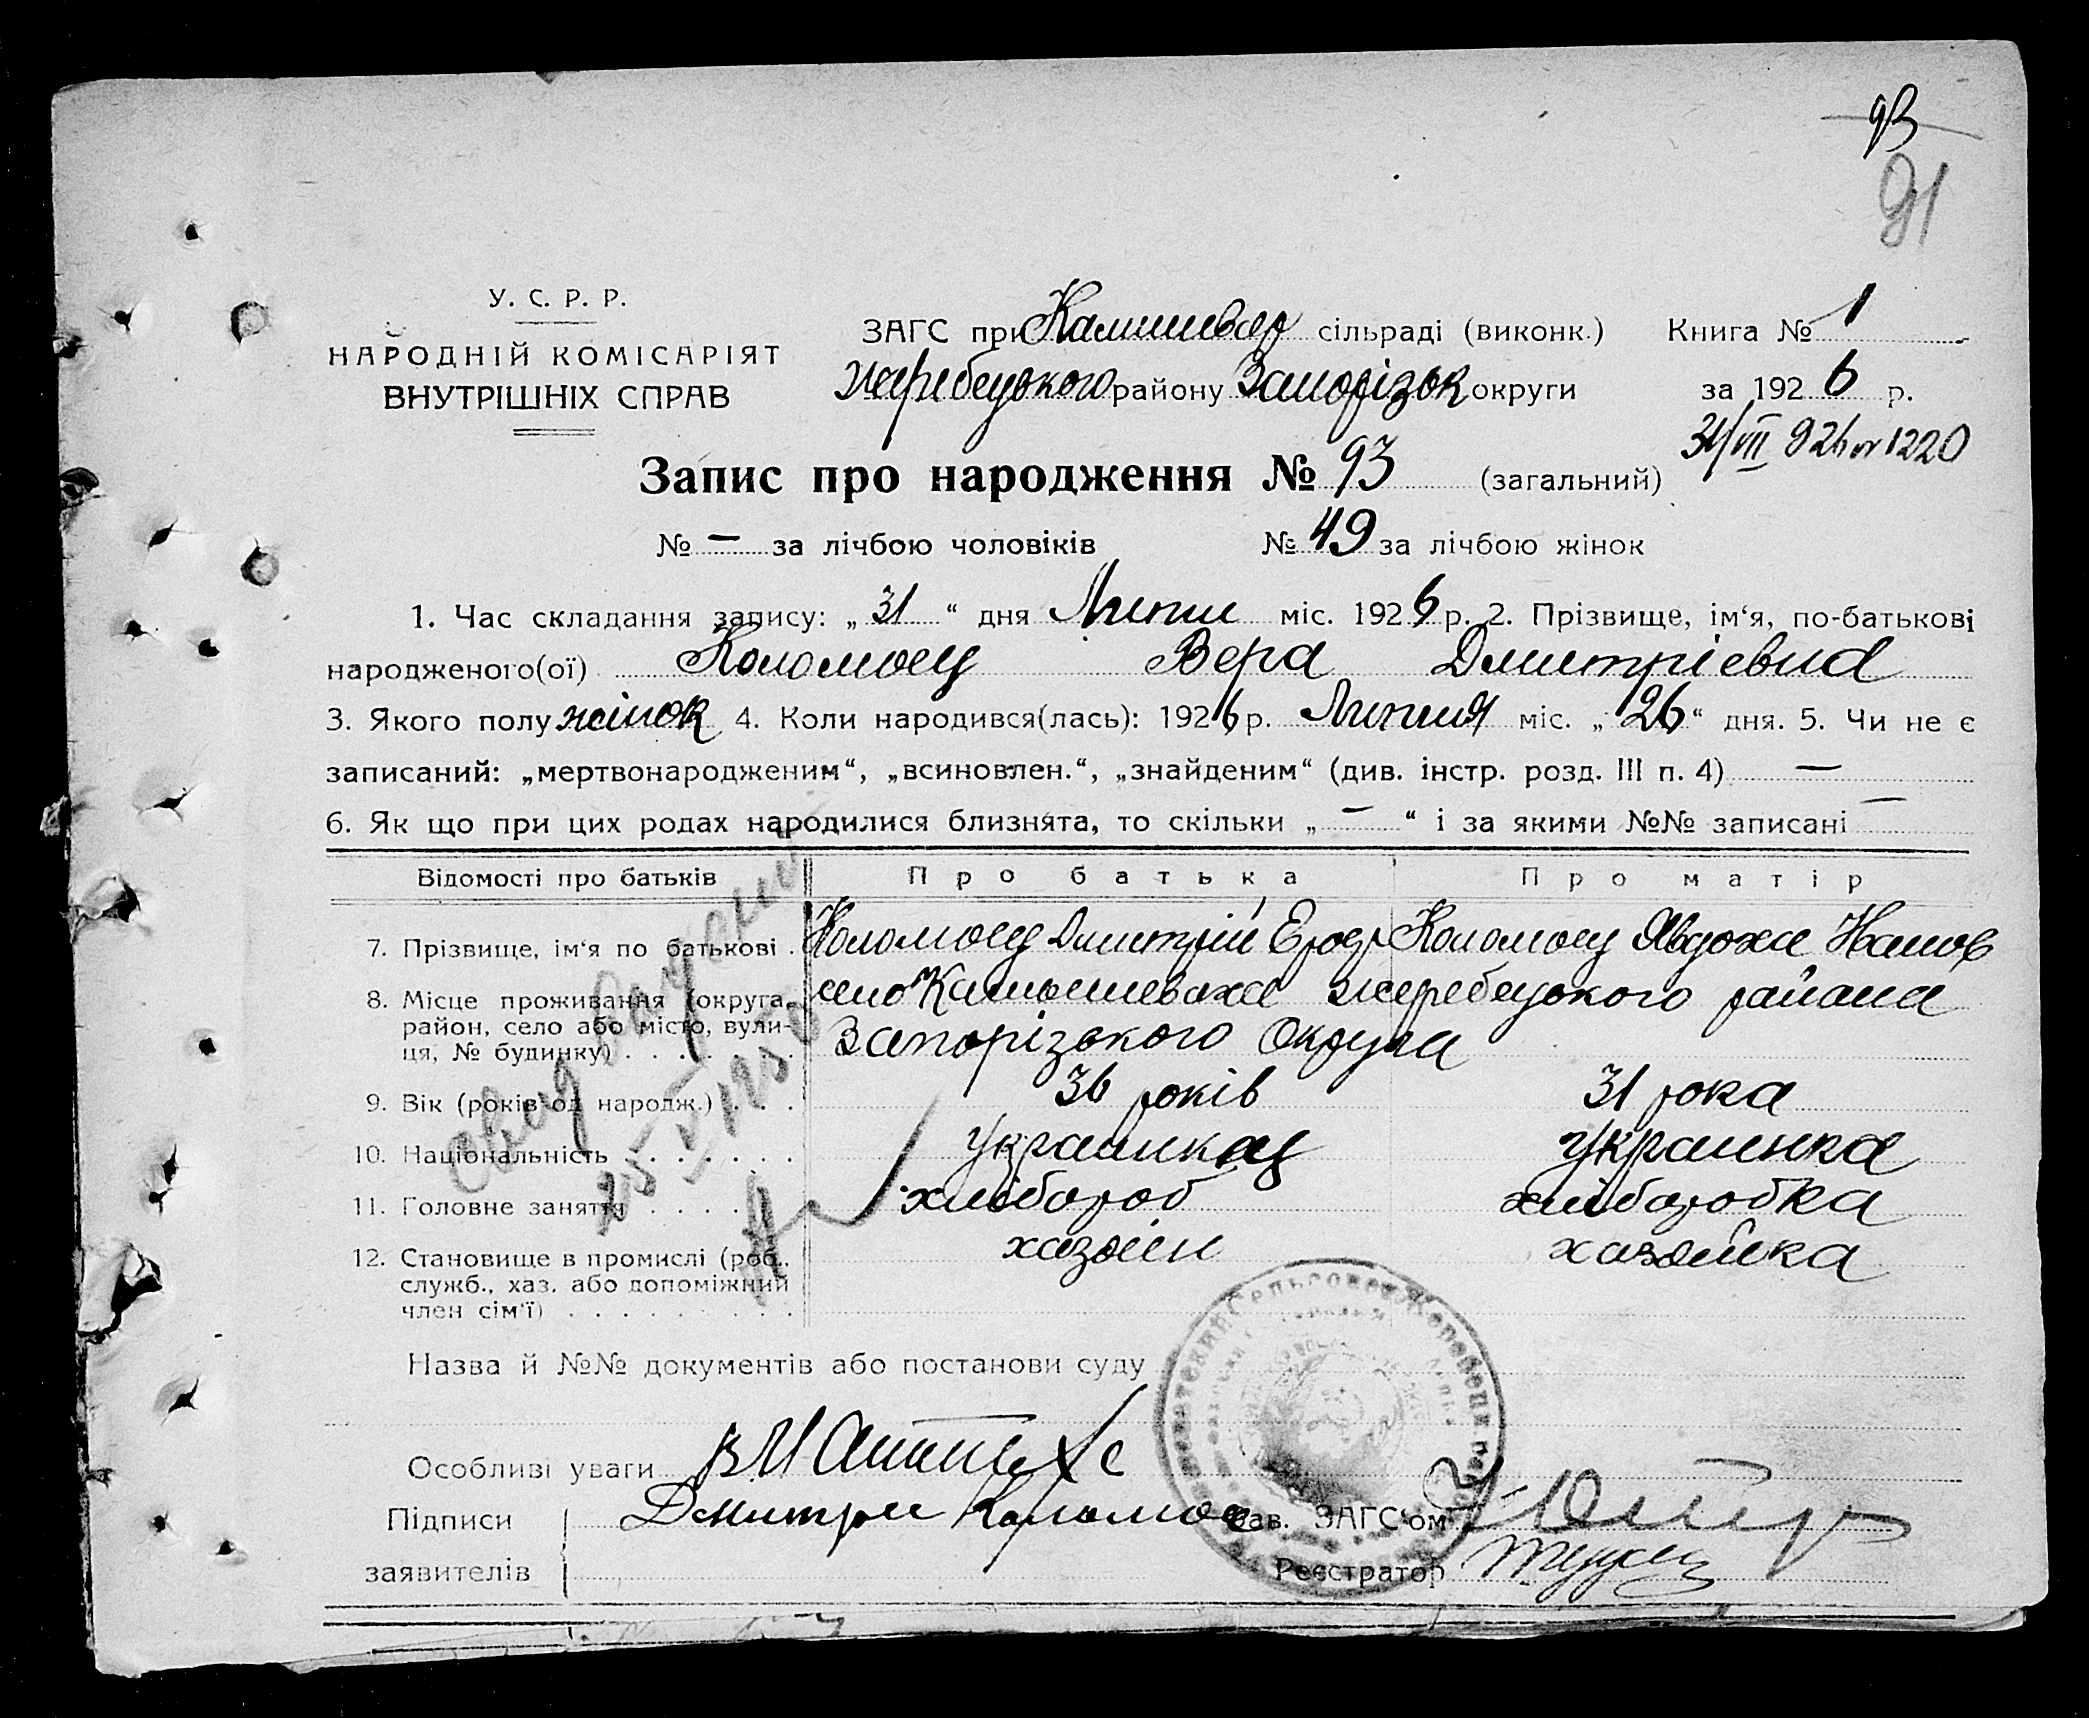 93
91
У. С. Р. Р.
НАРОДНІЙ КОМІСАРІЯТ
ВНУТРІШНІХ СПРАВ
ЗАГС при Камишевах сільраді (виконк.) Книга № 1
Жеребецького району Запорізьк округи за 1926 р.
31/VII 926 № 1220
Запис про народження № 93 (загальний)
№ — за лічбою чоловіків № 49 за лічбою жінок
1. Час складання запису: „31“ дня Липня міс. 1926 р. 2. Прізвище, ім‘я, по-батькові
народженого(ої) Коломоец Вера Дмитріевна
3. Якого полу жінок 4. Коли народився(лась): 1926 р. Липня міс. „26“ дня. 5. Чи не є
записаний: „мертвонародженим“, „всиновлен.“, „знайденим“ (див. інстр. розд. III п. 4) —
6. Як що при цих родах народилися близнята, то скільки „—“ і за якими №№ записані —
Відомості про батьків Про батька Про матір
7. Прізвище, ім‘я по батькові . Коломоец Дмитрій Коломоец Явдоха Иванов
8. Місце проживання (округа, село Камышеваха Жеребецького района
район, село або місто, вули- Запорізького Округа
ця, № будинку) . . . . . . .
9. Вік (років од народж.) . . . 36 років 31 рока
10. Національність . . . . . . . Украинец Украинка
11. Головне заняття . . . . . . хлібороб хліборобка
12. Становище в промислі (роб., хазяин хазяйка
служб., хаз. або допоміжний
член сім‘ї) . . . . . . . . .
25 V 1950
Назва й №№ документів або постанови суду
Особливі уваги
Підписи Дмитри Коломое Зав. ЗАГС‘ом
заявителів Реєстратор